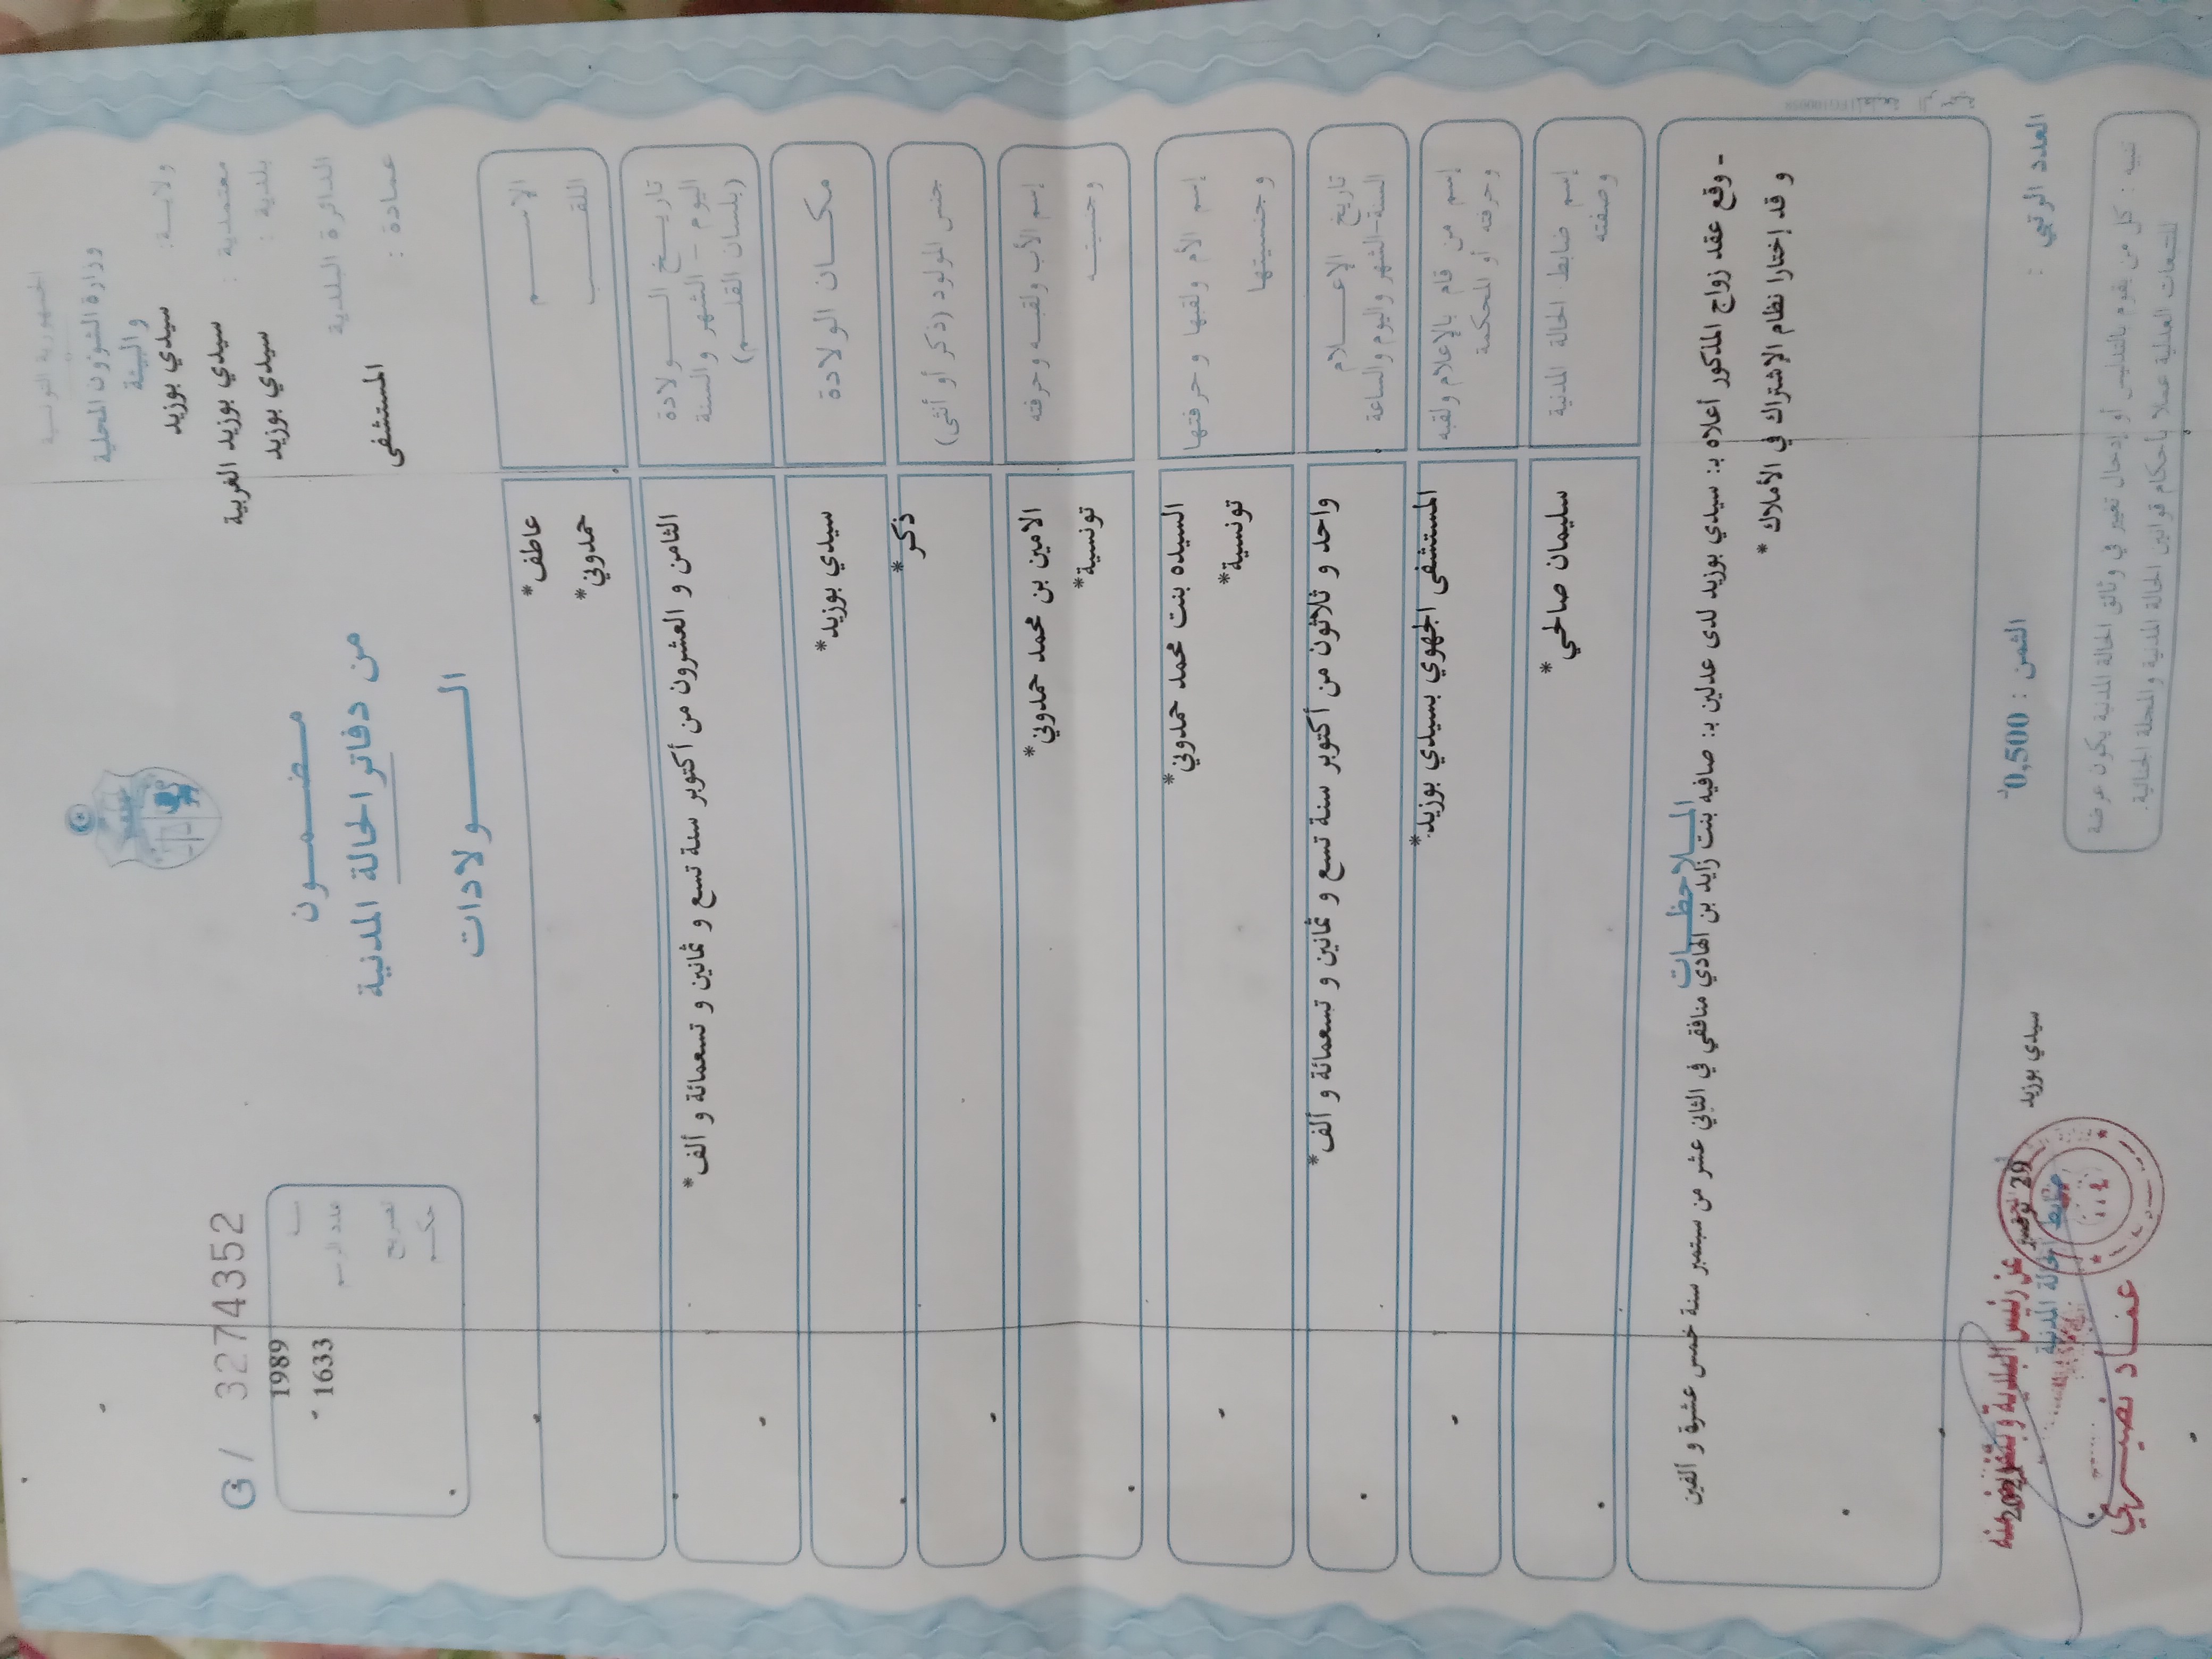 الجمهورية التونسية
وزارة الشؤون المحلية
والبيئة
ولايـــة: سيدي بوزيد
معتمدية : سيدي بوزيد الغربية
بلدية : سيدي بوزيد
الدائرة البلدية
عمادة : المستشفى
مضمــون
من دفاتر الحالة المدنية
الــولادات
G / 3274352
سنة 1989
عدد الرسم 1633
تصريح
حكم
الاســـم عاطف*
اللقـــب حمدوني*
تاريــخ الــولادة الثامن و العشرون من أكتوبر سنة تسع و ثمانين و تسعمائة و ألف*
اليوم – الشهر والسنة
(بلسان القلــم)
مكــان الولادة سيدي بوزيد*
جنس المولود (ذكر أو أنثى) ذكر*
إسم الأب ولقبــه وحرفته الامين بن محمد حمدوني*
وجنسيتــه تونسية*
إسم الأم ولقبها وحرفتها السيده بنت محمد حمدوني*
وجنسيتها تونسية*
تاريخ الإعـــلام واحد و ثلاثون من أكتوبر سنة تسع و ثمانين و تسعمائة و ألف*
السنة-الشهر واليوم والساعة
إسم من قام بالإعلام ولقبه المستشفى الجهوي بسيدي بوزيد.*
وحرفته أو المحكمة
إسم ضابط الحالة المدنية سليمان صالحي*
وصفته
المــلاحظــات
- وقع عقد زواج المذكور أعلاه بـ: سيدي بوزيد لدى عدلين بـ: صافيه بنت زايد بن الهادي منافقي في الثاني عشر من سبتمبر سنة خمس عشرة و ألفين
و قد إختارا نظام الإشتراك في الأملاك *
العدد الرتبي :
الثمن : 0,500د
سيدي بوزيد
29 نوفمبر 2021
ضابط الحالة المدنية
عن رئيس البلدية وبتفويض منه
عمـاد نصيـري
تنبيه : كل من يقوم بالتدليس أو إدخال تغيير في وثائق الحالة المدنية يكون عرضة
للتتبعات العدلية عملا بأحكام قوانين الحالة المدنية والمجلة الجنائية.